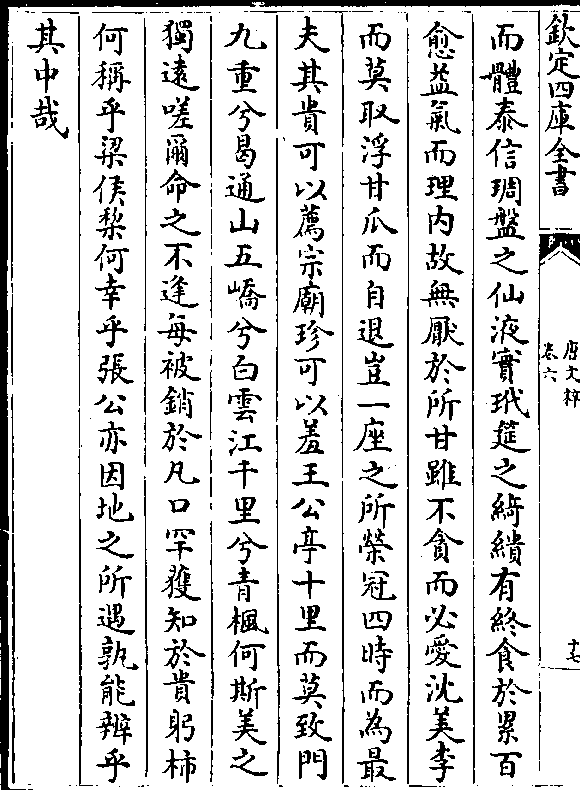 欽定四庫全書
唐文粹
卷六
十七
而體泰信琱盤之仙液實玳筵之綺繢有終食於累百
愈益氣而理内故無厭於所甘雖不貪而必愛沈美李
而莫取浮甘瓜而自退豈一座之所榮冠四時而為最
夫其貴可以薦宗廟珍可以羞王公亭十里而莫致門
九重兮曷通山五嶠兮白雲江千里兮青楓何斯美之
獨逺嗟爾命之不逢每被銷於凡口罕獲知於貴躬柿
何稱乎梁侯梨何幸乎張公亦因地之所遇孰能辨乎
其中哉